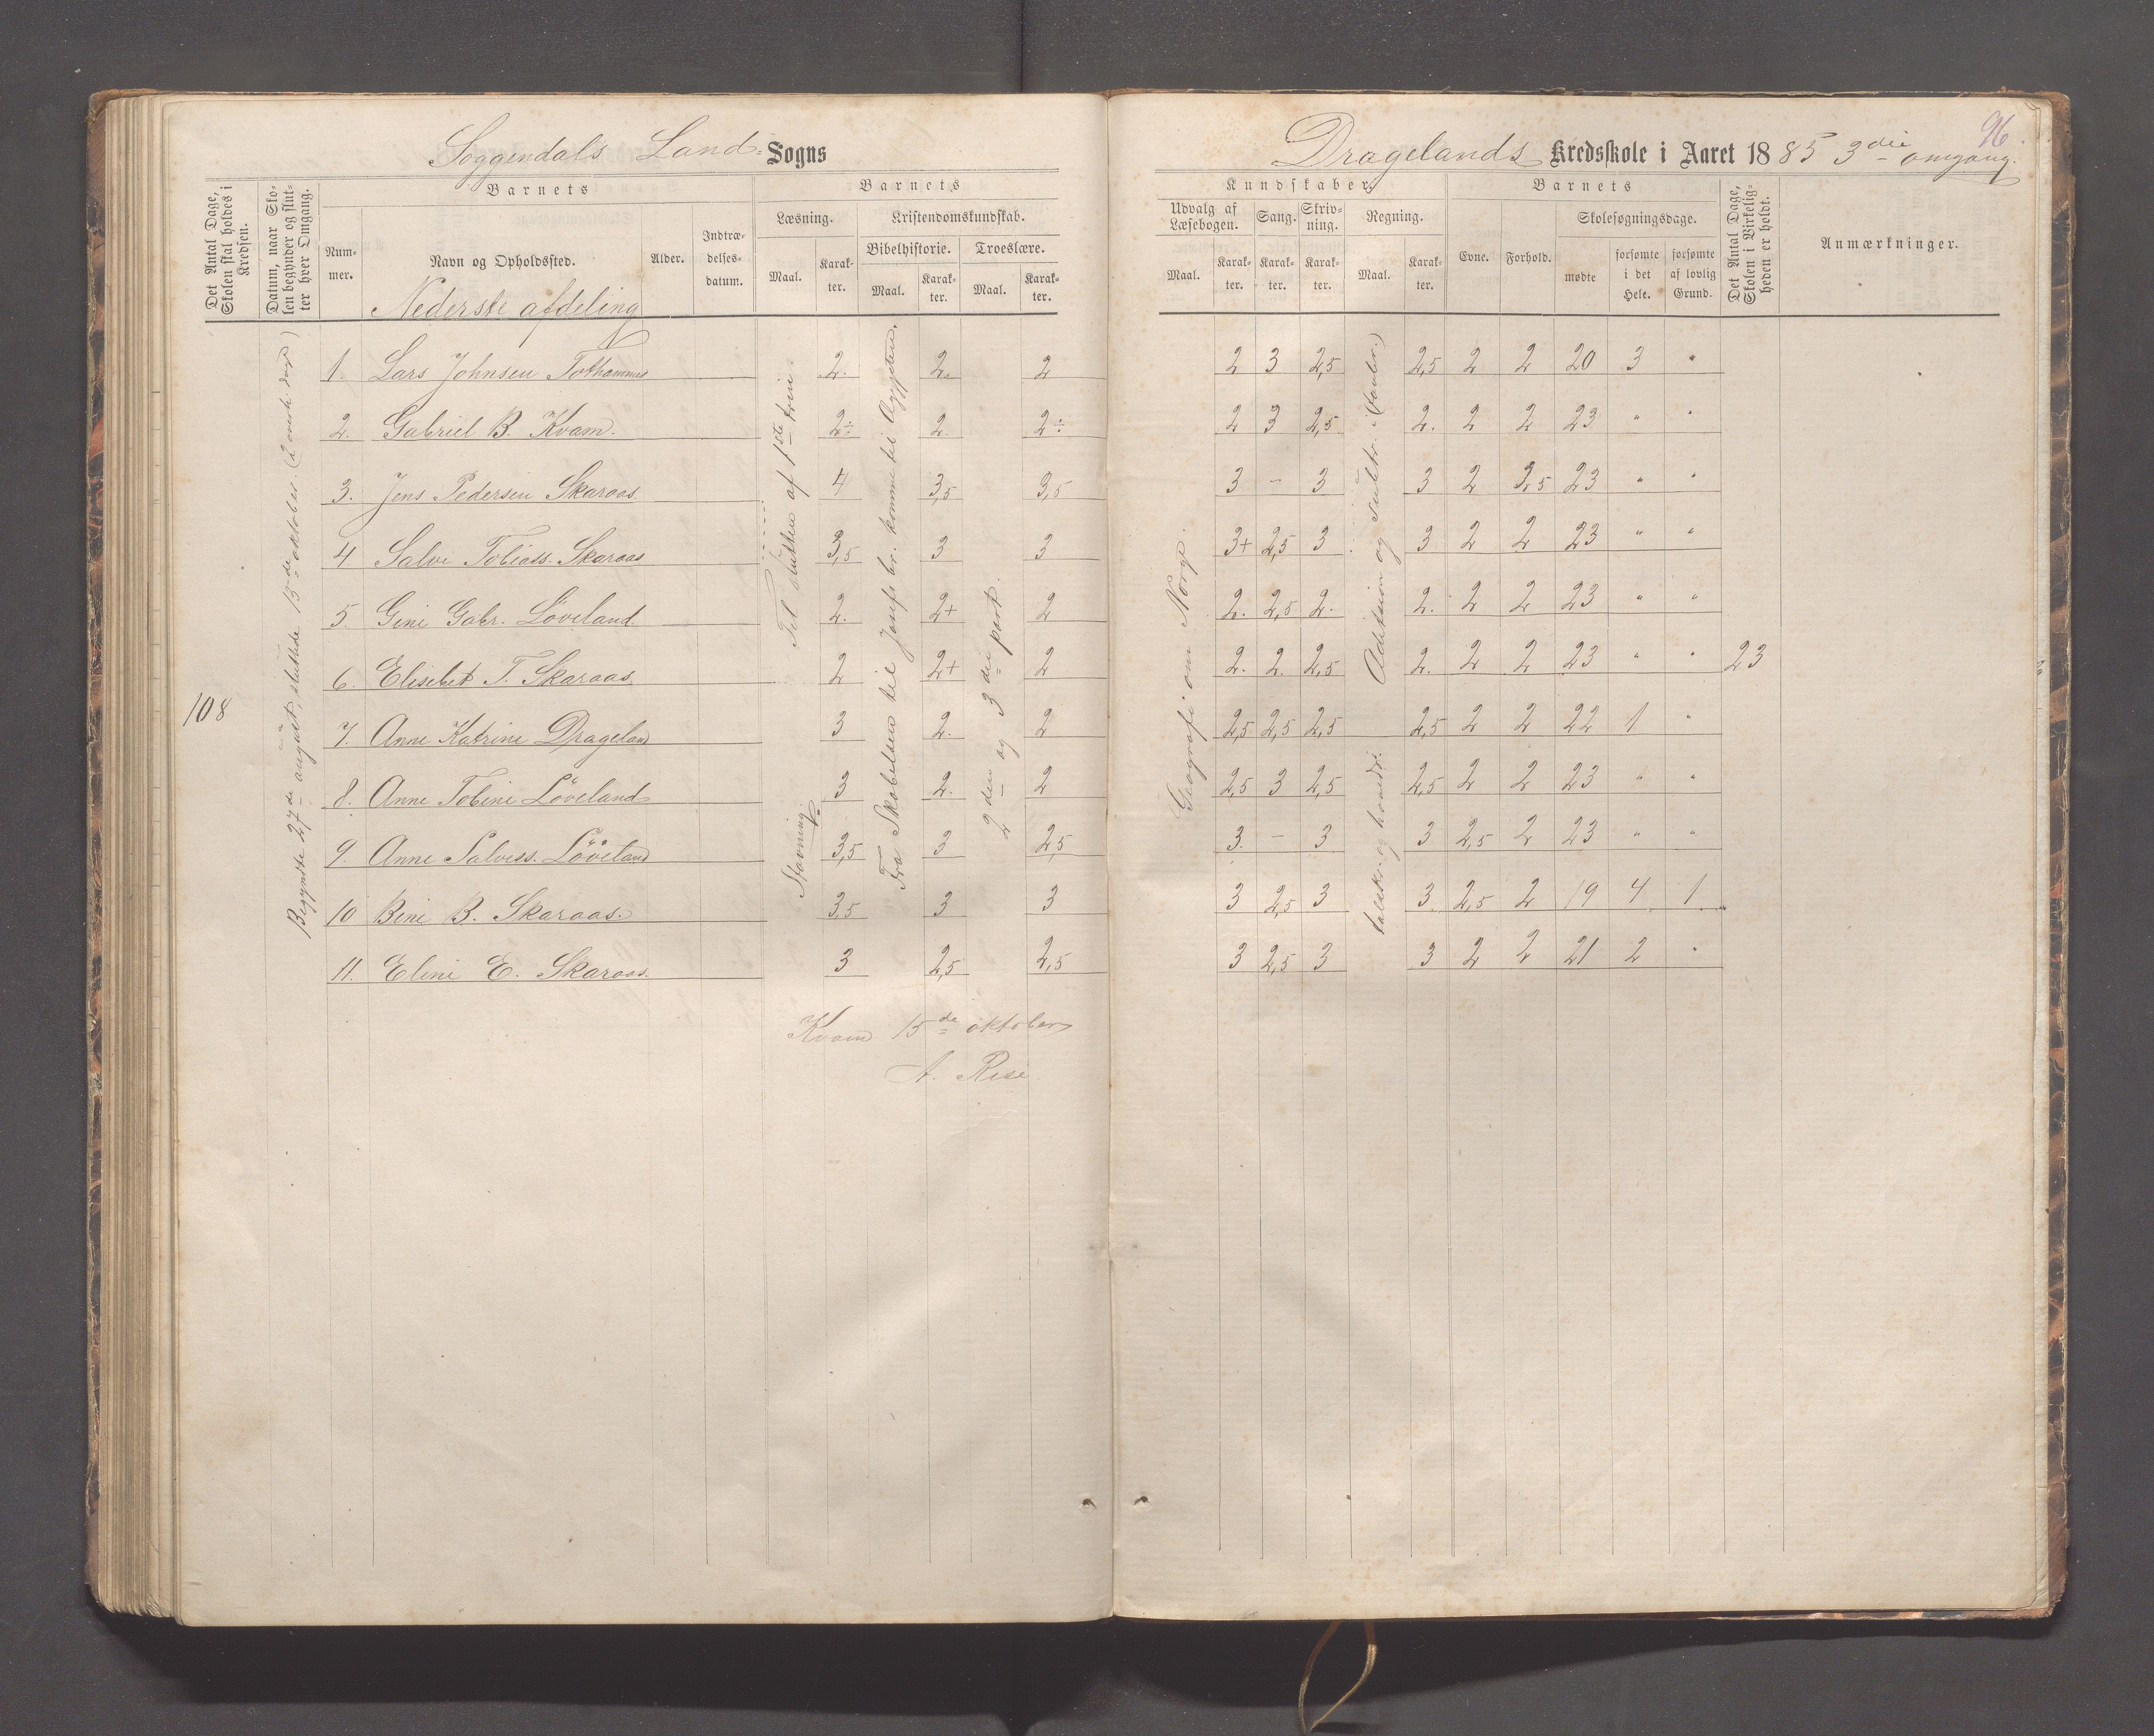 Soggendals Land- Sogns
Dragelands Kredsskole i Aaret 1885 3die omgang.
96.
Det Antal Dage, Skolen skal holdes i Kredsen.
Datum, naar Skolen begynder og slutter hver Omgang.
Barnets
Nummer.
Navn og Opholdssted.
Alder.
Indtrædelsesdatum.
Barnets
Læsning.
Maal.
Karakter.
Kristendomskundskab.
Bibelhistorie.
Maal.
Karakter.
Troeslære.
Maal.
Karakter.
Kundskaber.
Udvalg af Læsebogen.
Maal.
Karakter.
Sang.
Karakter.
Skrivning.
Karakter.
Regning.
Maal.
Karakter.
Barnets
Evne.
Forhold.
Skolesøgningsdage.
mødte
forsømte i det Hele.
forsømte af lovlig Grund.
Det Antal Dage, Skolen i Virkeligheden er holdt.
Anmærkninger.
Nederste afdeling
108
Begyndte 27de august, sluttede 15de oktober.
Til slutten af 1ste trin.
Stavning
Fra Skabelsen til Josefs br. komme til Ægypten.
2den og 3die part.
Geografi om Norge.
Addition og subtr.
1. Lars Johnsen Tothammer 2. 2. 2 2 3 2,5 2,5 2 2 20 3 "
2. Gabriel B. Kvam. 2÷ 2. 2÷ 2 3 2,5 2. 2 2 23 " "
3. Jens Pedersen Skaraas 4 3,5 3,5 3 - 3 3 2 2,5 23 " "
4 Salve Tobiass. Skaraas 3,5 3 3 3+ 2,5 3 3 2 2 23 " "
5. Gine Gabr. Löveland 2. 2+ 2 2. 2,5 2. 2. 2 2 23 " "
6. Elisebet T. Skaraas 2 2+ 2 2. 2. 2,5 2. 2 2 23 " " 23
7. Anne Katrine Drageland 3 2. 2 2,5 2,5 2,5 2,5 2 2 22 1 "
8. Anne Tobine Löveland 3 2. 2 2,5 3 2,5 2,5 2 2 23 " "
9. Anne Salvess. Löveland 3,5 3 2,5 3. - 3 3 2,5 2 23 " "
10 Bine B. Skaraas. 3,5 3 3 3 2,5 3 3 2,5 2 19 4 1
11. Eline E. Skaraas. 3 2,5 2,5 3 2,5 3 3 2 2 21 2 "
Kvam 15de oktober
A. Rese